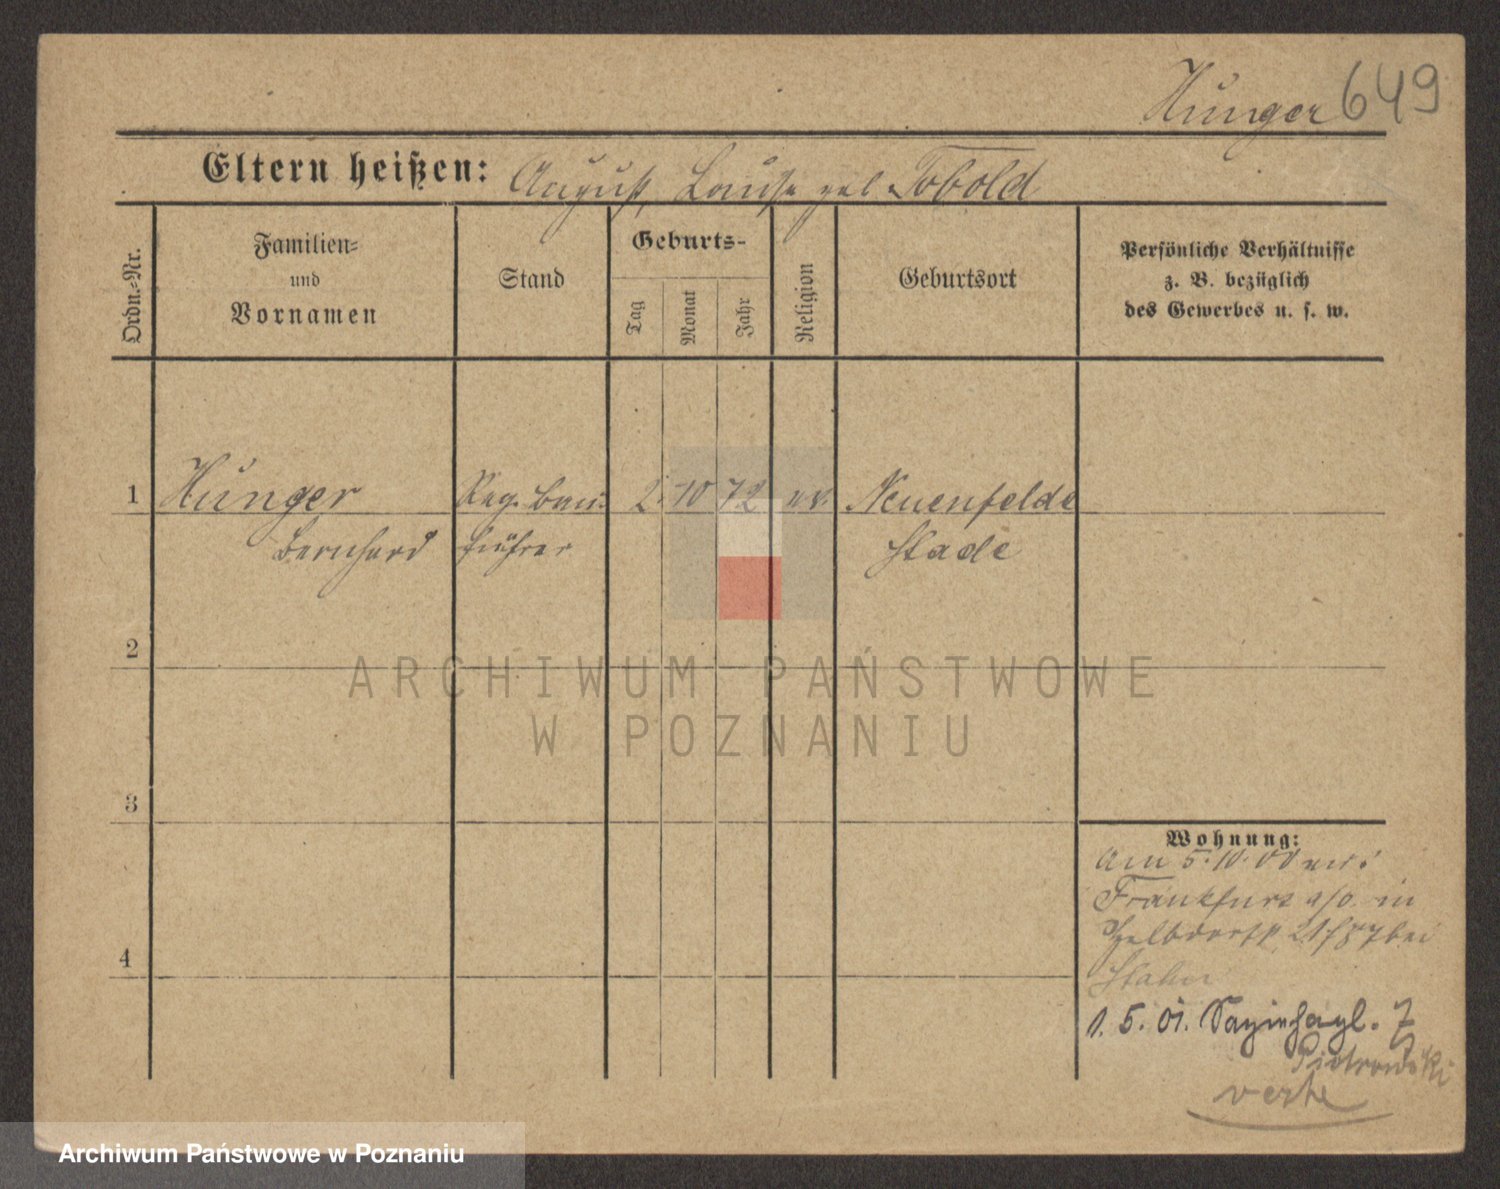 Hunger 649
Eltern heißen: August, Louise geb Tobold
Ordn.-Nr.
Familien-
und
Vornamen
Stand
Geburts-
Tag
Monat
Jahr
Religion
Geburtsort
Persönliche Verhältnisse
z. B. bezüglich
des Gewerbes u. s. w.
1 Hunger Reg. Bau- 2. 10 72 ev. Neuenfelde
Bernhard führer Stade
2
3
4
Wohnung:
Am 5. 10. 00 von
Frankfurt a/O. in
21/87 bei
1. 5. 01. 7
Piotrowski
verte
ARCHIWUM PAŃSTWOWE
W POZNANIU
Archiwum Państwowe w Poznaniu